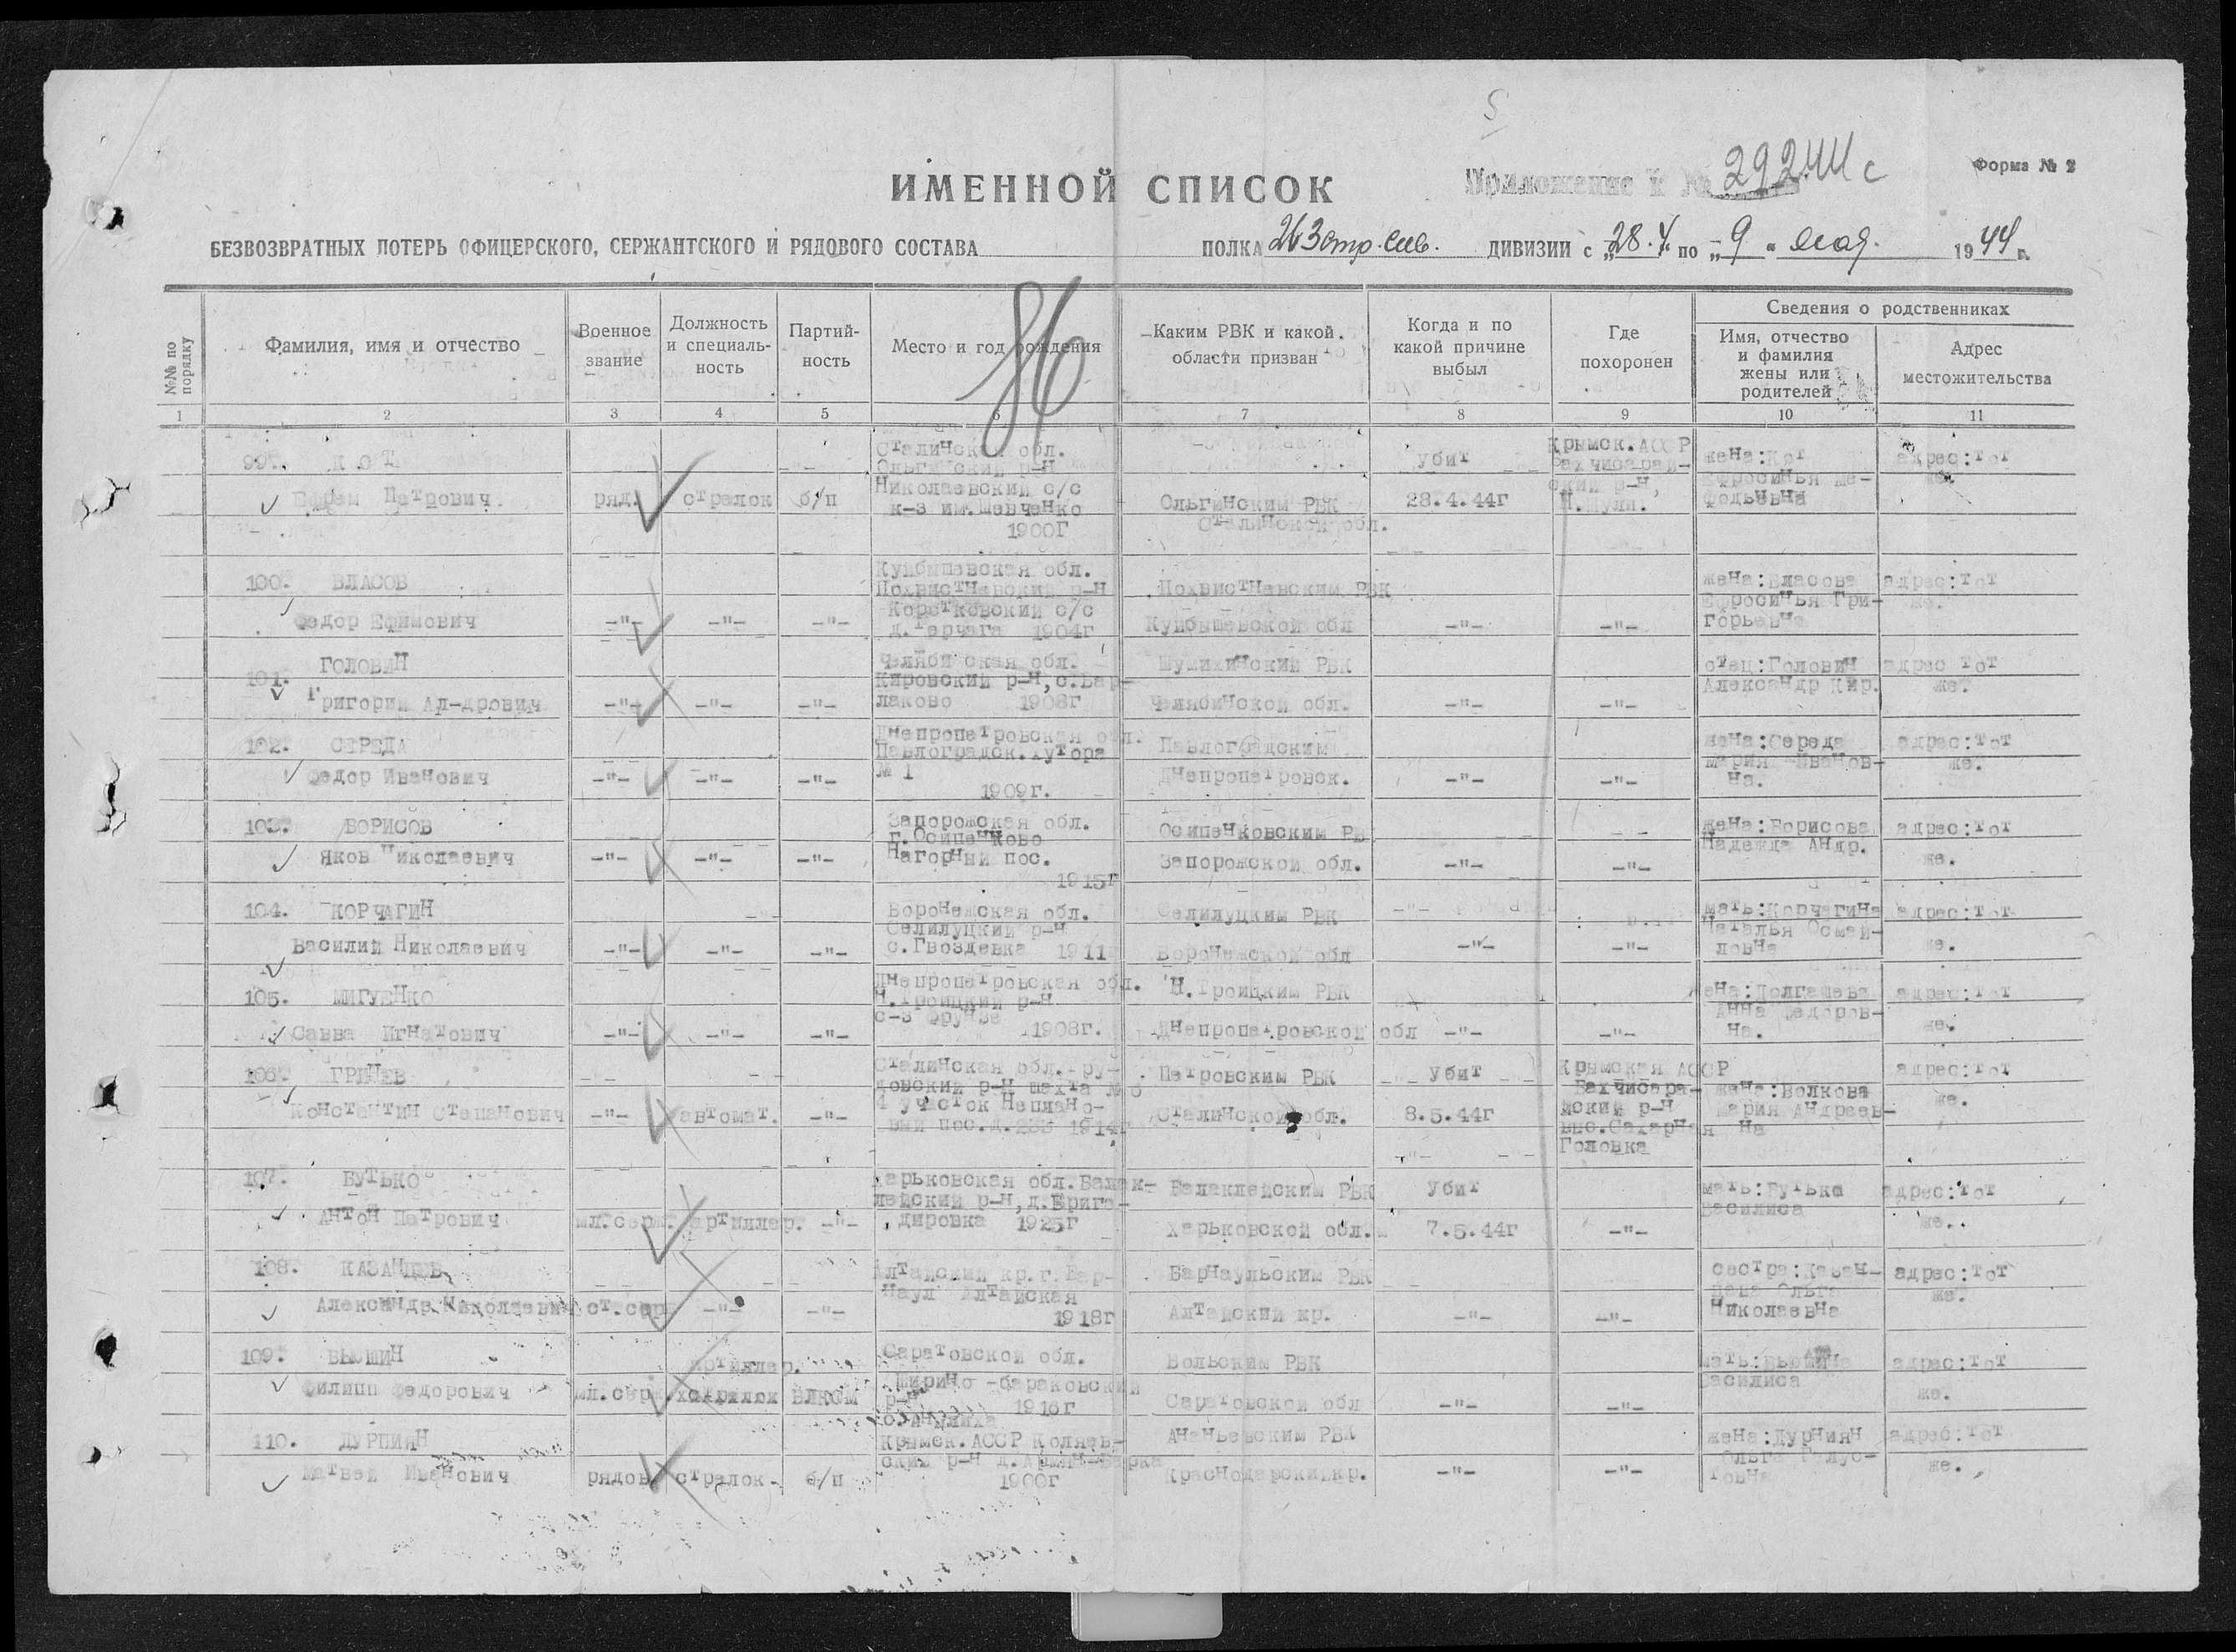 S
ИМЕННОЙ СПИСОК
Приложение к № 29244с
Форма № 2
БЕЗВОЗВРАТНЫХ ПОТЕРЬ ОФИЦЕРСКОГО, СЕРЖАНТСКОГО И РЯДОВОГО СОСТАВА ПОЛКА 263 стр. сив. ДИВИЗИИ с „28.4. по „9" мая. 1944 г.
86
№№ по порядку
Фамилия, имя и отчество
Военное звание
Должность и специаль-ность
Партий-ность
Место и год рождения
Каким РВК и какой области призван
Когда и по какой причине выбыл
Где похоронен
Сведения о родственниках
Имя, отчество и фамилия жены или родителей
Адрес местожительства
1 2 3 4 5 6 7 8 9 10 11
99. КОТ Сталинская обл. Убит Крымск.АССР жена:Кот адрес:тот
Ольгинский р-н Бахчисарай-
Ефрем Петрович ряд. стрелок б/п Николаевский с/с Ольгинским РВК 28.4.44г ский р-н, Ефросинья Ме- же.
к-з им.Шевченко Сталинской обл. Н.Шули. фодьевна
1900г
100. ВЛАСОВ Куйбышевская обл. Похвистневским РВК жена:Власова адрес:тот
Похвистневский р-н Ефросинья Гри- же.
Федор Ефимович -"- -"- -"- с/с Куйбышевской обл -"- -"- горьевна
1904г
101. ГОЛОВИН Челябинская обл. Шумихинский РВК отец:Головин адрес тот
Кировский р-н, с.Бар- Александр Кир. же.
Григорий Ал-дрович -"- -"- -"- лаково 1908г Челябинской обл. -"- -"-
102. СЕРЕДА Днепропетровская обл. Павлоградским жена:Середа адрес:тот
Павлоградск.хутора Мария Иванов- же.
Федор Иванович -"- -"- -"- № 1 Днепропетровск. -"- -"- на.
1909г.
103. БОРИСОВ Запорожская обл. Осипенковским РВ жена:Борисова адрес:тот
г.Осипенково Надежда Андр.
Яков Николаевич -"- -"- -"- Нагорный пос. Запорожской обл. -"- -"- же.
1915г
104. КОРЧАГИН Воронежская обл. Селилуцким РВК мать:Корчагина адрес:тот
Селилуцкий р-н Наталья Осмай-
Василий Николаевич -"- -"- -"- с.Гвоздевка 1911 Воронежской обл -"- -"- ловна же.
105. МИГУЕНКО Днепропетровская обл. Н.Троицким РВК жена:Долгашева адрес:тот
Н.Троицкий р-н Анна Федоров-
Савва Игнатович -"- -"- -"- с-з Фрунзе 1908г. Днепропетровской обл -"- -"- на. же.
106. ГРИНЕВ Сталинская обл. Петровским РВК Убит Крымская АССР адрес:тот
р-н шахта Бахчисара- жена:Волкова
Константин Степанович -"- автомат. -"- 4 участок Сталинской обл. 8.5.44г йский р-н Мария Андреев- же.
выс.Сахарная на
Головка
107. БУТЬКО Харьковская обл.Балак- Балаклейским РВК Убит мать:Бутько адрес:тот
лейский р-н, Василиса
Антон Петрович мл.серж. артиллер. -"- дировка 1925г Харьковской обл. 7.5.44г -"- же.
108. КАЗАНЦЕВ Алтайский кр.г.Бар- Барнаульским РВК сестра:Казан- адрес:тот
наул Алтайская цева Ольга же.
Александр Николаевич ст.серж -"- -"- 1918г Алтайский кр. -"- -"- Николаевна
109. ВЬЮШИН артиллер. Саратовской обл. Вольским РВК мать:Вьюшина адрес:тот
Филипп Федорович мл.серж. стрелок ВЛКСМ Ширино-бараковский Саратовской обл -"- -"- Василиса же.
р-н 1916г
110. ДУРНИЯН Крымск.АССР Ананьевским РВК жена:Дурниян адрес:тот
ский р-н Ольга
Матвей Иванович рядов. стрелок- б/п 1900г Краснодарский кр. -"- -"- товна же.